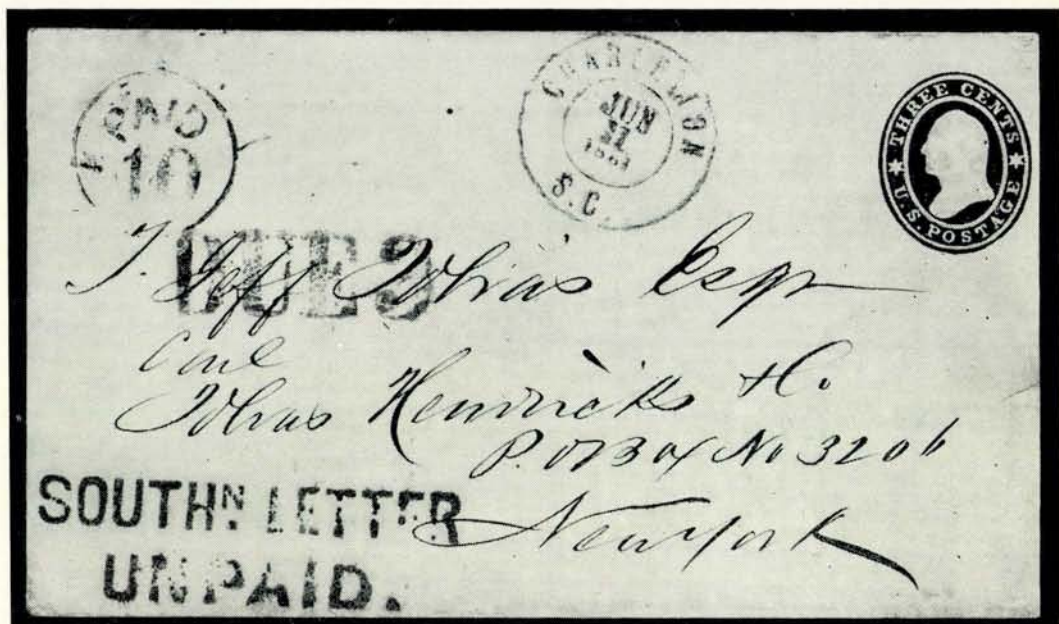 PAID
10
CHARLESTON
JUN
1861
S.C.
THREE CENTS
U.S. POSTAGE
DUE 3
T. Jeff Tobias Esqr
Care
Tobias Hendricks & Co
P.O Box No 3206
New York
SOUTHN. LETTER
UNPAID.